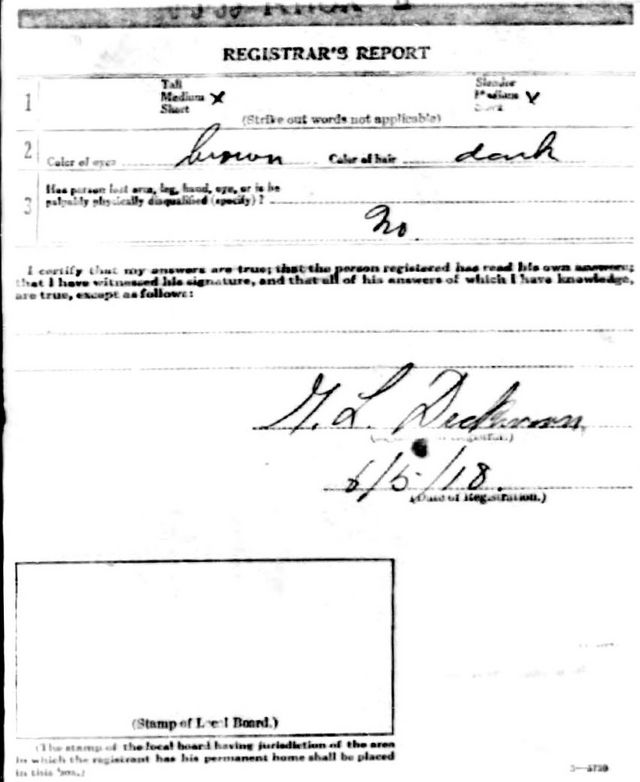 REGISTRAR'S REPORT
1
Tall
Medium x
Short
Slender
Medium x
Stout
(Strike out words not applicable)
2 Color of eyes brown Color of hair dark
3 Has person lost arm, leg, hand, eye, or is he
palpably physically disqualified (specify)?
No
I certify that my answers are true; that the person registered has read his own answers;
that I have witnessed his signature, and that all of his answers of which I have knowledge,
are true, except as follows:
L.
6/5/18.
(Date of Registration.)
(Stamp of Local Board.)
(The stamp of the local board having jurisdiction of the area
in which the registrant has his permanent home shall be placed
in this box.)